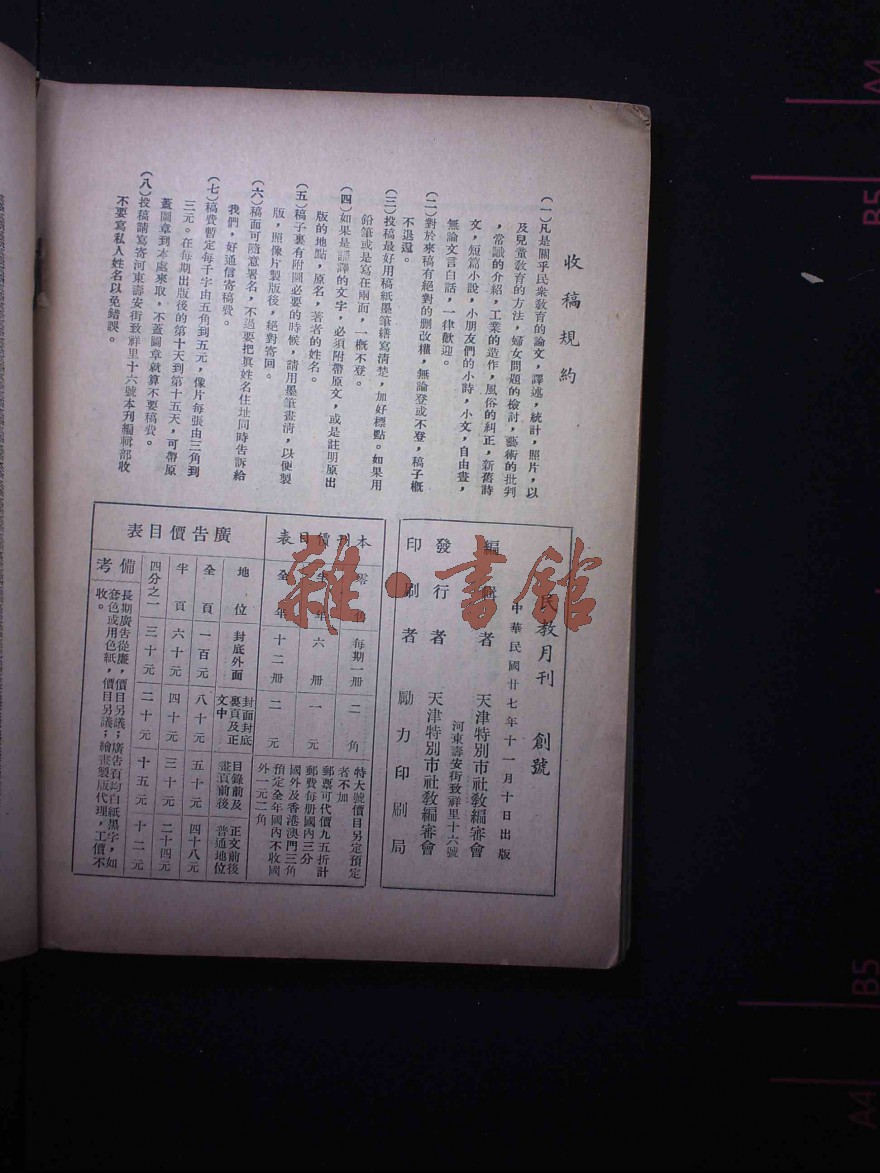 收稿規約
(一)凡是關乎民衆敎育的論文,譯述,統計,照片,以
及兒童敎育的方法,婦女問題的檢討,藝術的批判
,常識的介紹,工業的造作,風俗的糾正,新舊詩
文,短篇小說,小朋友們的小詩,小文,自由畫,
無論文言白話,一律歡迎。
(二)對於來稿有絕對的删改權,無論登或不登,稿子概
不退還。
(三)投稿最好用稿紙墨筆繕寫清楚,加好標點。如果用
鉛筆或是寫在兩面,一概不登。
(四)如果是譯的文字,必須附帶原文,或是註明原出
版的地點,原名,著者的姓名。
(五)稿子裏有附圖必要的時候,請用墨筆畫清,以便製
版,照像片製版後,絕對寄回。
(六)稿面可隨意署名,不過要把眞姓名住址同時告訴給
我們,好通信寄稿費。
(七)稿費暫定每千字由五角到五元,像片每張由三角到
三元。在每期出版後的第十天到第十五天,可帶原
蓋圖章到本處來取,不蓋圖章就算不要稿費。
(八)投稿請寫寄河東壽安街致祥里十六號本刊編輯部收
不要寫私人姓名以免錯誤。
民敎月刊 創號
中華民國廿七年十一月十日出版
編 者 天津特別市社敎編審會
河東壽安街致祥里十六號
發行者 天津特別市社敎編審會
印刷者 勵力印刷局
本刊價目表
零 每期一册 二角
半年 六册 一元
全年 十二册 二元
特大號價目另定預定
者不加
郵票可代價九五折計
郵費每册國內三分
國外及香港澳門三角
預定全年國內不收國
外一元二角
廣告價目表
地位 封底外面 封面封底裏頁及正文中 目錄前及畫頁前後 正文前後普通地位
全頁 一百元 八十元 五十元 四十八元
半頁 六十元 四十元 三十元 二十四元
四分之一 三十元 二十元 十五元 十二元
備考
長期廣告從廉,價目另議;廣告頁均白紙黑字,如
套色或用色紙,價目另議;繪畫製版代理,工價不
收。
雜·書館
A4
B5
B5
A4